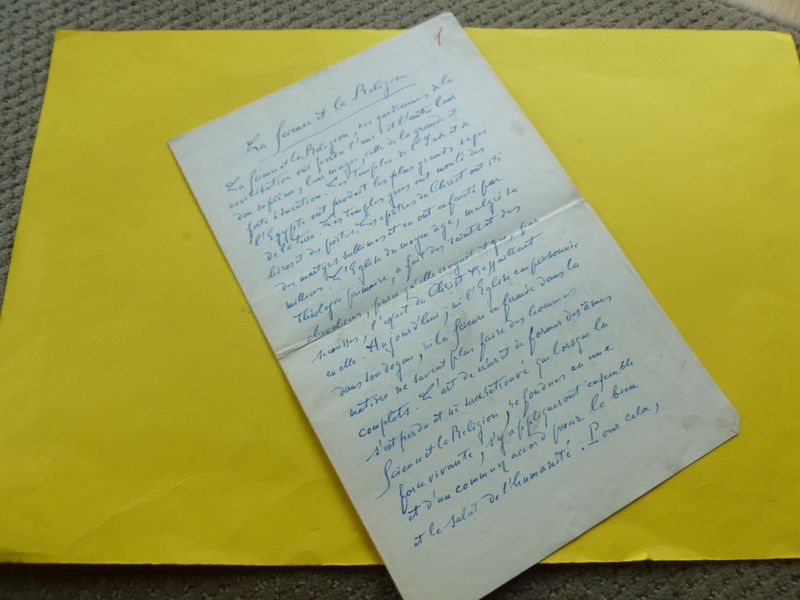 1
La Science et la Religion
La Science et la Religion, ces gardiennes de la
civilisation ont perdu l'une et l'autre leur
don suprême, leur magie, celle de la grande et
forte éducation. Les temples de l'Inde et de
l'Egypte ont produit les plus grands sages
de la terre. Les temples grecs ont moulé des
héros et des poètes. Les apôtres du Christ ont été
des martyrs sublimes et en ont enfanté par
milliers. L'Eglise du moyen âge, malgré sa
Théologie primaire, a fait des saints et des
chevaliers, parce qu'elle croyait et que, par
secousses, l'esprit du Christ tressaillait
en elle. Aujourd'hui, ni l'Eglise emprisonnée
dans son dogme, ni la Science enfermée dans la
matière ne savent plus faire des hommes
complets. L'art de créer et de former des âmes
s'est perdu et ne sera retrouvé que lorsque la
Science et la Religion, refondues en une
force vivante, s'y appliqueront ensemble
et d'un commun accord pour le bien
et le salut de l'humanité. Pour cela,